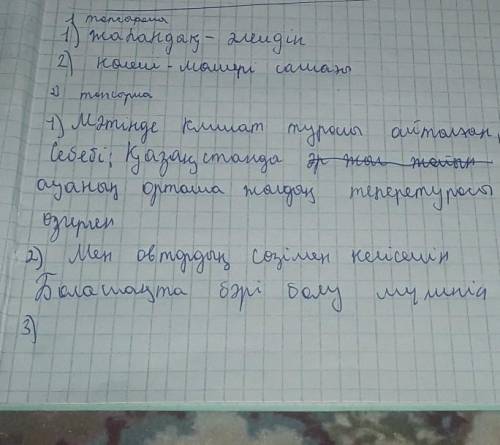 1 тапсарма
1) жаһандақ - әлемдік
2) көлем - мөлшері самағы
2) тапсорма
1) Мәтінде климат туросы айталған,
себебі; Қазақстанда әр жыл жайын
ауаның орташа жалдық теперетуросы
өзгерген
2) Мен овтордың сөзімен келісемін
Балашақта бәрі болу мүмкін
3)